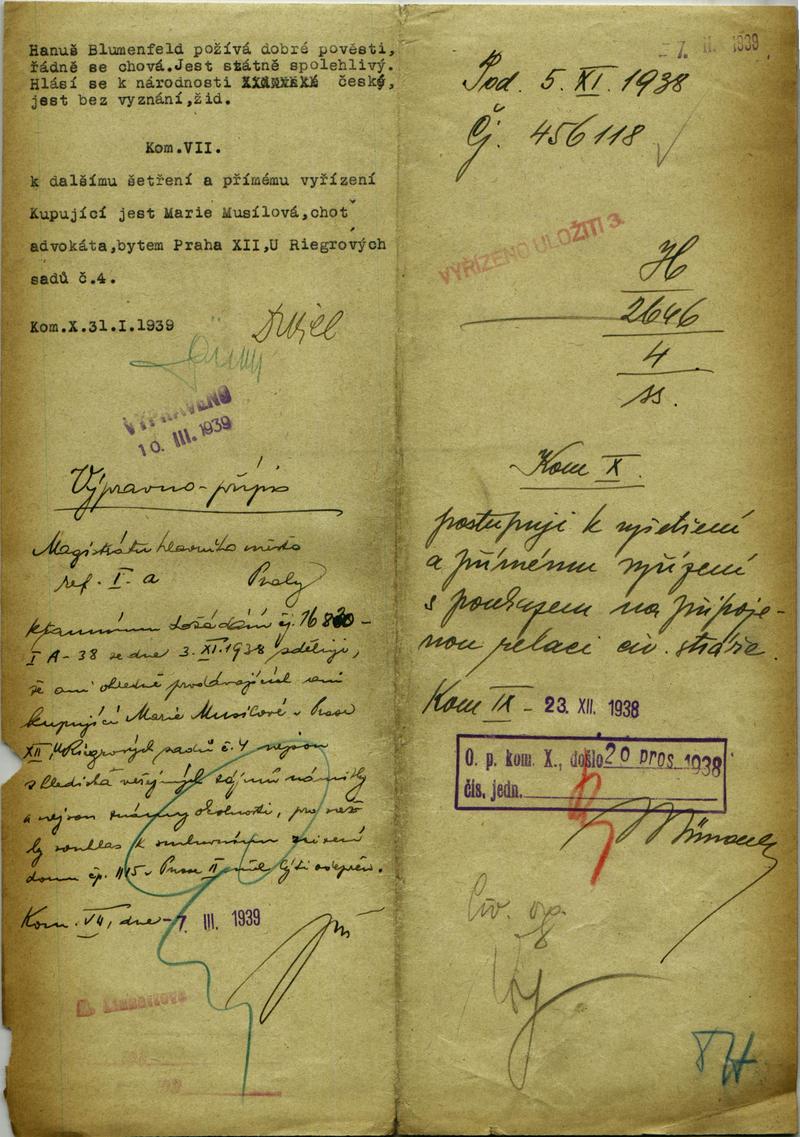 Hanuš Blumenfeld požívá dobré pověsti,
řádně se chová.Jest státně spolehlivý.
Hlásí se k národnosti český,
jest bez vyznání,žid.
Kom.VII.
k dalšímu šetření a přímému vyřízení
Kupující jest Marie Musílová,choť
advokáta,bytem Praha XII,U Riegrových
sadů č.4.
Kom.X.31.I.1939
VYPRAVENO
10. III. 1939
Výpravno-přípis
Magistrátu hlavního města
ref. I. a Prahy
I A-38 ze dne 3. XI. 1938 sděluji,
že ani ohledně prodávajících ani
kupující Marie Musilové v Praze
XII, U Riegrových sadů č. 4 nejsou
s hlediska veřejných zájmů námitky
a nejsou známy okolnosti, pro než
by souhlas k smluvnímu zcizení
domu čp. 1115 v Praze II měl býti odepřen.
Kom. VII, dne 7. III. 1939
7. II. 1939
Pod. 5. XI. 1938
Čj. 456118
VYŘÍZENO ULOŽITI 3.
H
2646
4
ss.
Kom X.
postupuji k vyšetření
a přímému vyřízení
s poukazem na připoje-
nou relaci civ. stráže.
Kom IX - 23. XII. 1938
O. p. kom. X., došlo 20 pros. 1938
čís. jedn.
Civ. og.